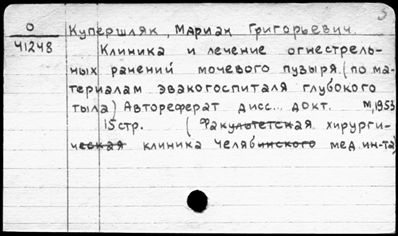 О Купершляк, Мариан Григорьевич.
41248 Клиника и лечение огнестрель-
ных ранений мочевого пузыря. (по ма-
териалам эвакогоспиталя глубокого
тыла) Автореферат дисс.. докт. М, 1953
15стр. (Факультетская хирурги-
ческая клиника Челябинского мед. ин-та)